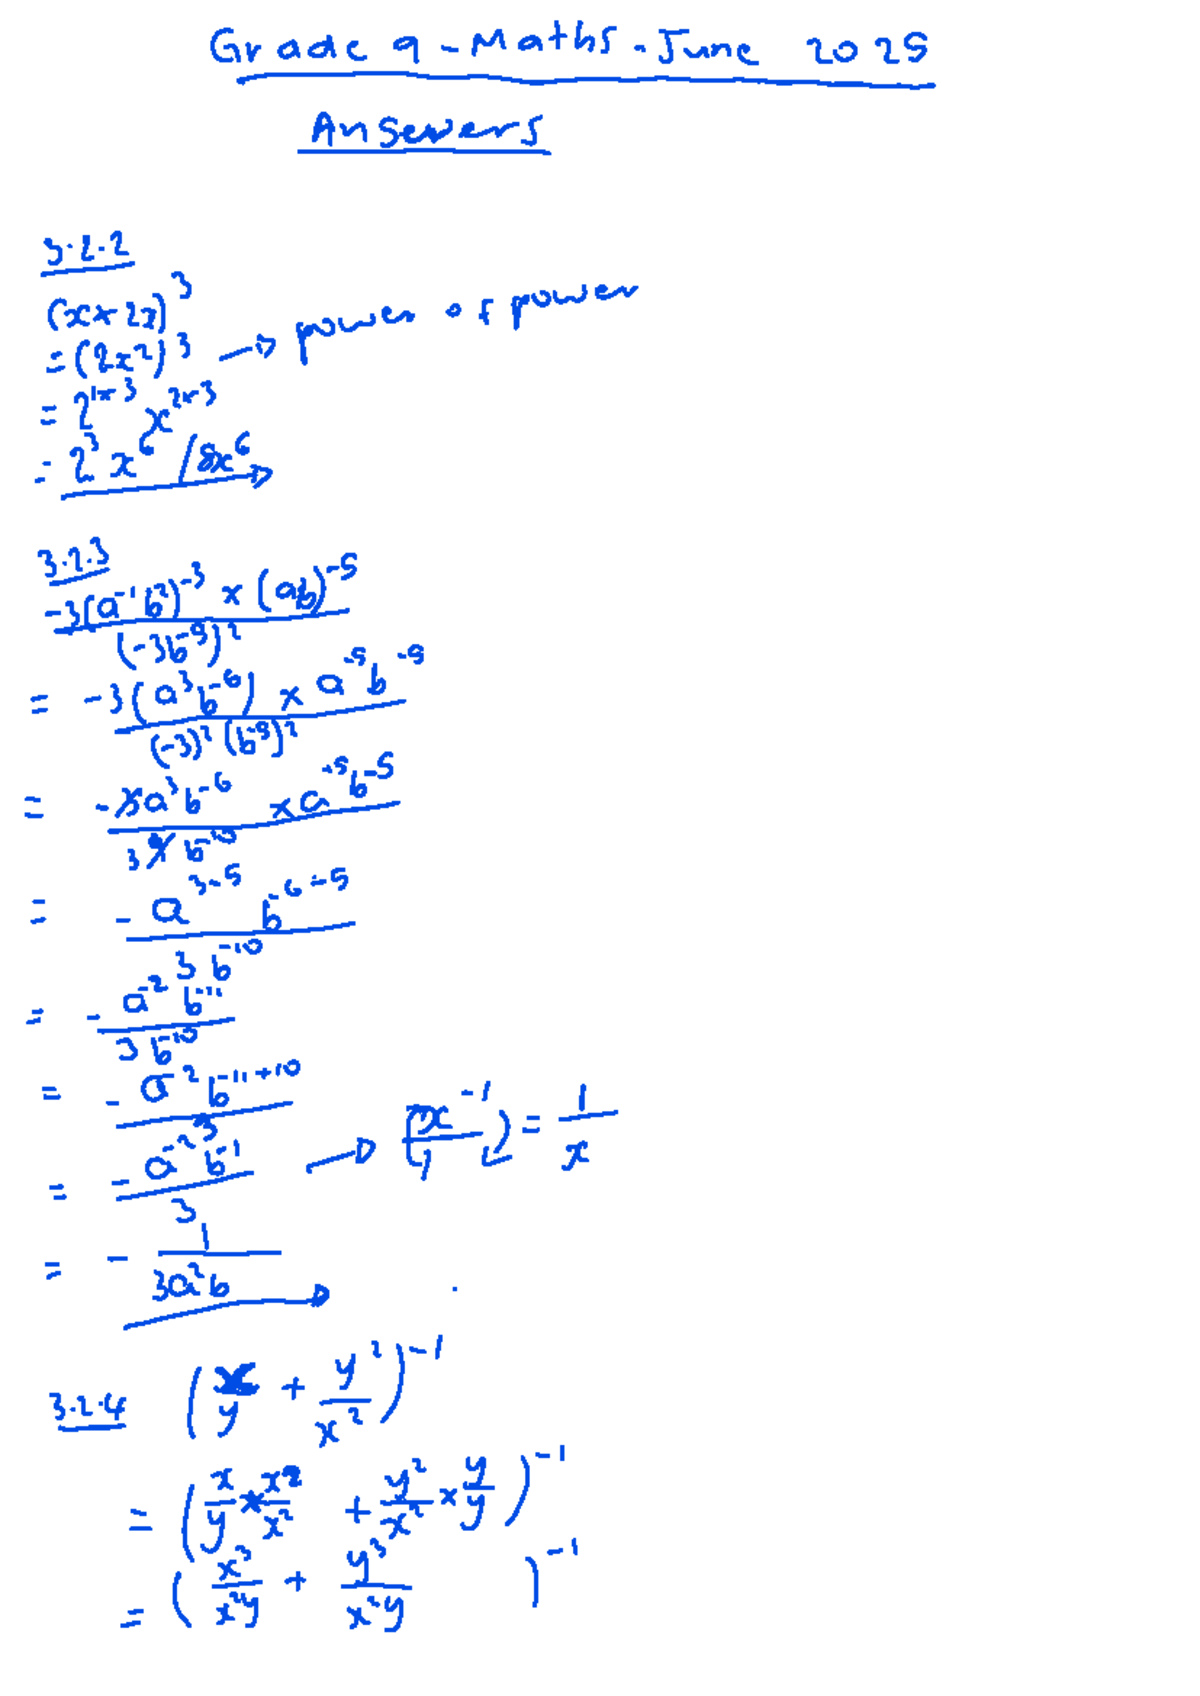 Grade 9 - Maths - June 2025
Answers
3.2.2
(x × 2x)³
= (2x²)³ → power of power
= 2^{1×3} x^{2×3}
= 2³ x⁶ / 8x⁶
3.2.3
\frac{-3(a^{-1}b^{2})^{-3} × (ab)^{-5}}{(-3b^{-5})^{2}}
= \frac{-3(a^{3}b^{-6}) × a^{-5}b^{-5}}{(-3)^{2}(b^{-5})^{2}}
= \frac{-3a^{3}b^{-6} × a^{-5}b^{-5}}{3 9 b^{-10}}
= \frac{-a^{3-5} b^{-6-5}}{3b^{-10}}
= \frac{-a^{-2}b^{-11}}{3b^{-10}}
= \frac{-a^{-2}b^{-11+10}}{3}
= \frac{-a^{-2}b^{-1}}{3} → (\frac{x^{-1}}{1}) = \frac{1}{x}
= -\frac{1}{3a^{2}b}
3.2.4 (\frac{x}{y} + \frac{y^{2}}{x^{2}})^{-1}
= (\frac{x}{y} × \frac{x^{2}}{x^{2}} + \frac{y^{2}}{x^{2}} × \frac{y}{y})^{-1}
= (\frac{x^{3}}{x^{2}y} + \frac{y^{3}}{x^{2}y})^{-1}